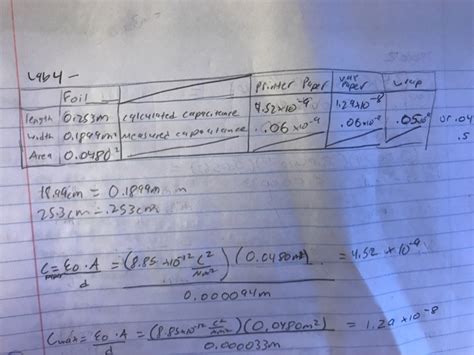 Lab 4 -
Foil Printer Paper wax Paper wrap
length 0.253m calculated capacitance 4.52×10⁻⁹ 1.29×10⁻⁸
width 0.1899m measured capacitance .06×10⁻⁹ .06×10⁻⁹ .05 or .04
Area 0.0480² .5
18.99cm = 0.1899m m
25.3cm = .253cm
C = ε₀·A/d = (8.85×10⁻¹² C²/Nm²)(0.0480m²)/0.000094m = 4.52×10⁻⁹
Cmax = ε₀·A/d = (8.85×10⁻¹² C²/Nm²)(0.0480m²)/0.000033m = 1.29×10⁻⁸